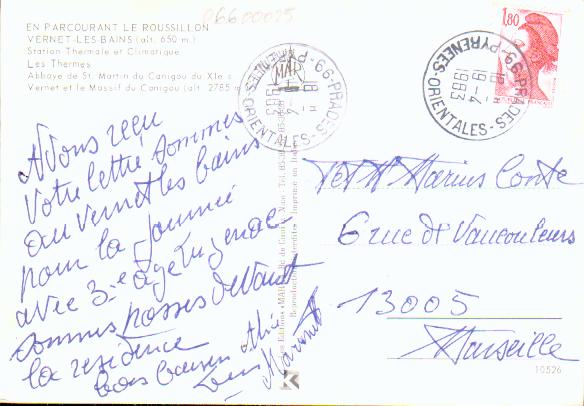 06600025
EN PARCOURANT LE ROUSSILLON
VERNET-LES-BAINS (alt. 650 m.)
Station Thermale et Climatique
Les Thermes
Abbaye de St. Martin du Canigou du XIe s.
Vernet et le Massif du Canigou (alt. 2785 m
1,80
66-PRADES
18 H
19-4
1983
PYRENEES-ORIENTALES
66-PRADES
19-4
1983
PYRENEES-ORIENTALES
MAR
Avons reçu
votre lettre sommes
au Vernet les bains
pour la journée
avec 3e age
sommes passés devant
la residence
bons baisers
Mr Marius Conte
6 rue de Vaucouleurs
13005
Marseille
10526